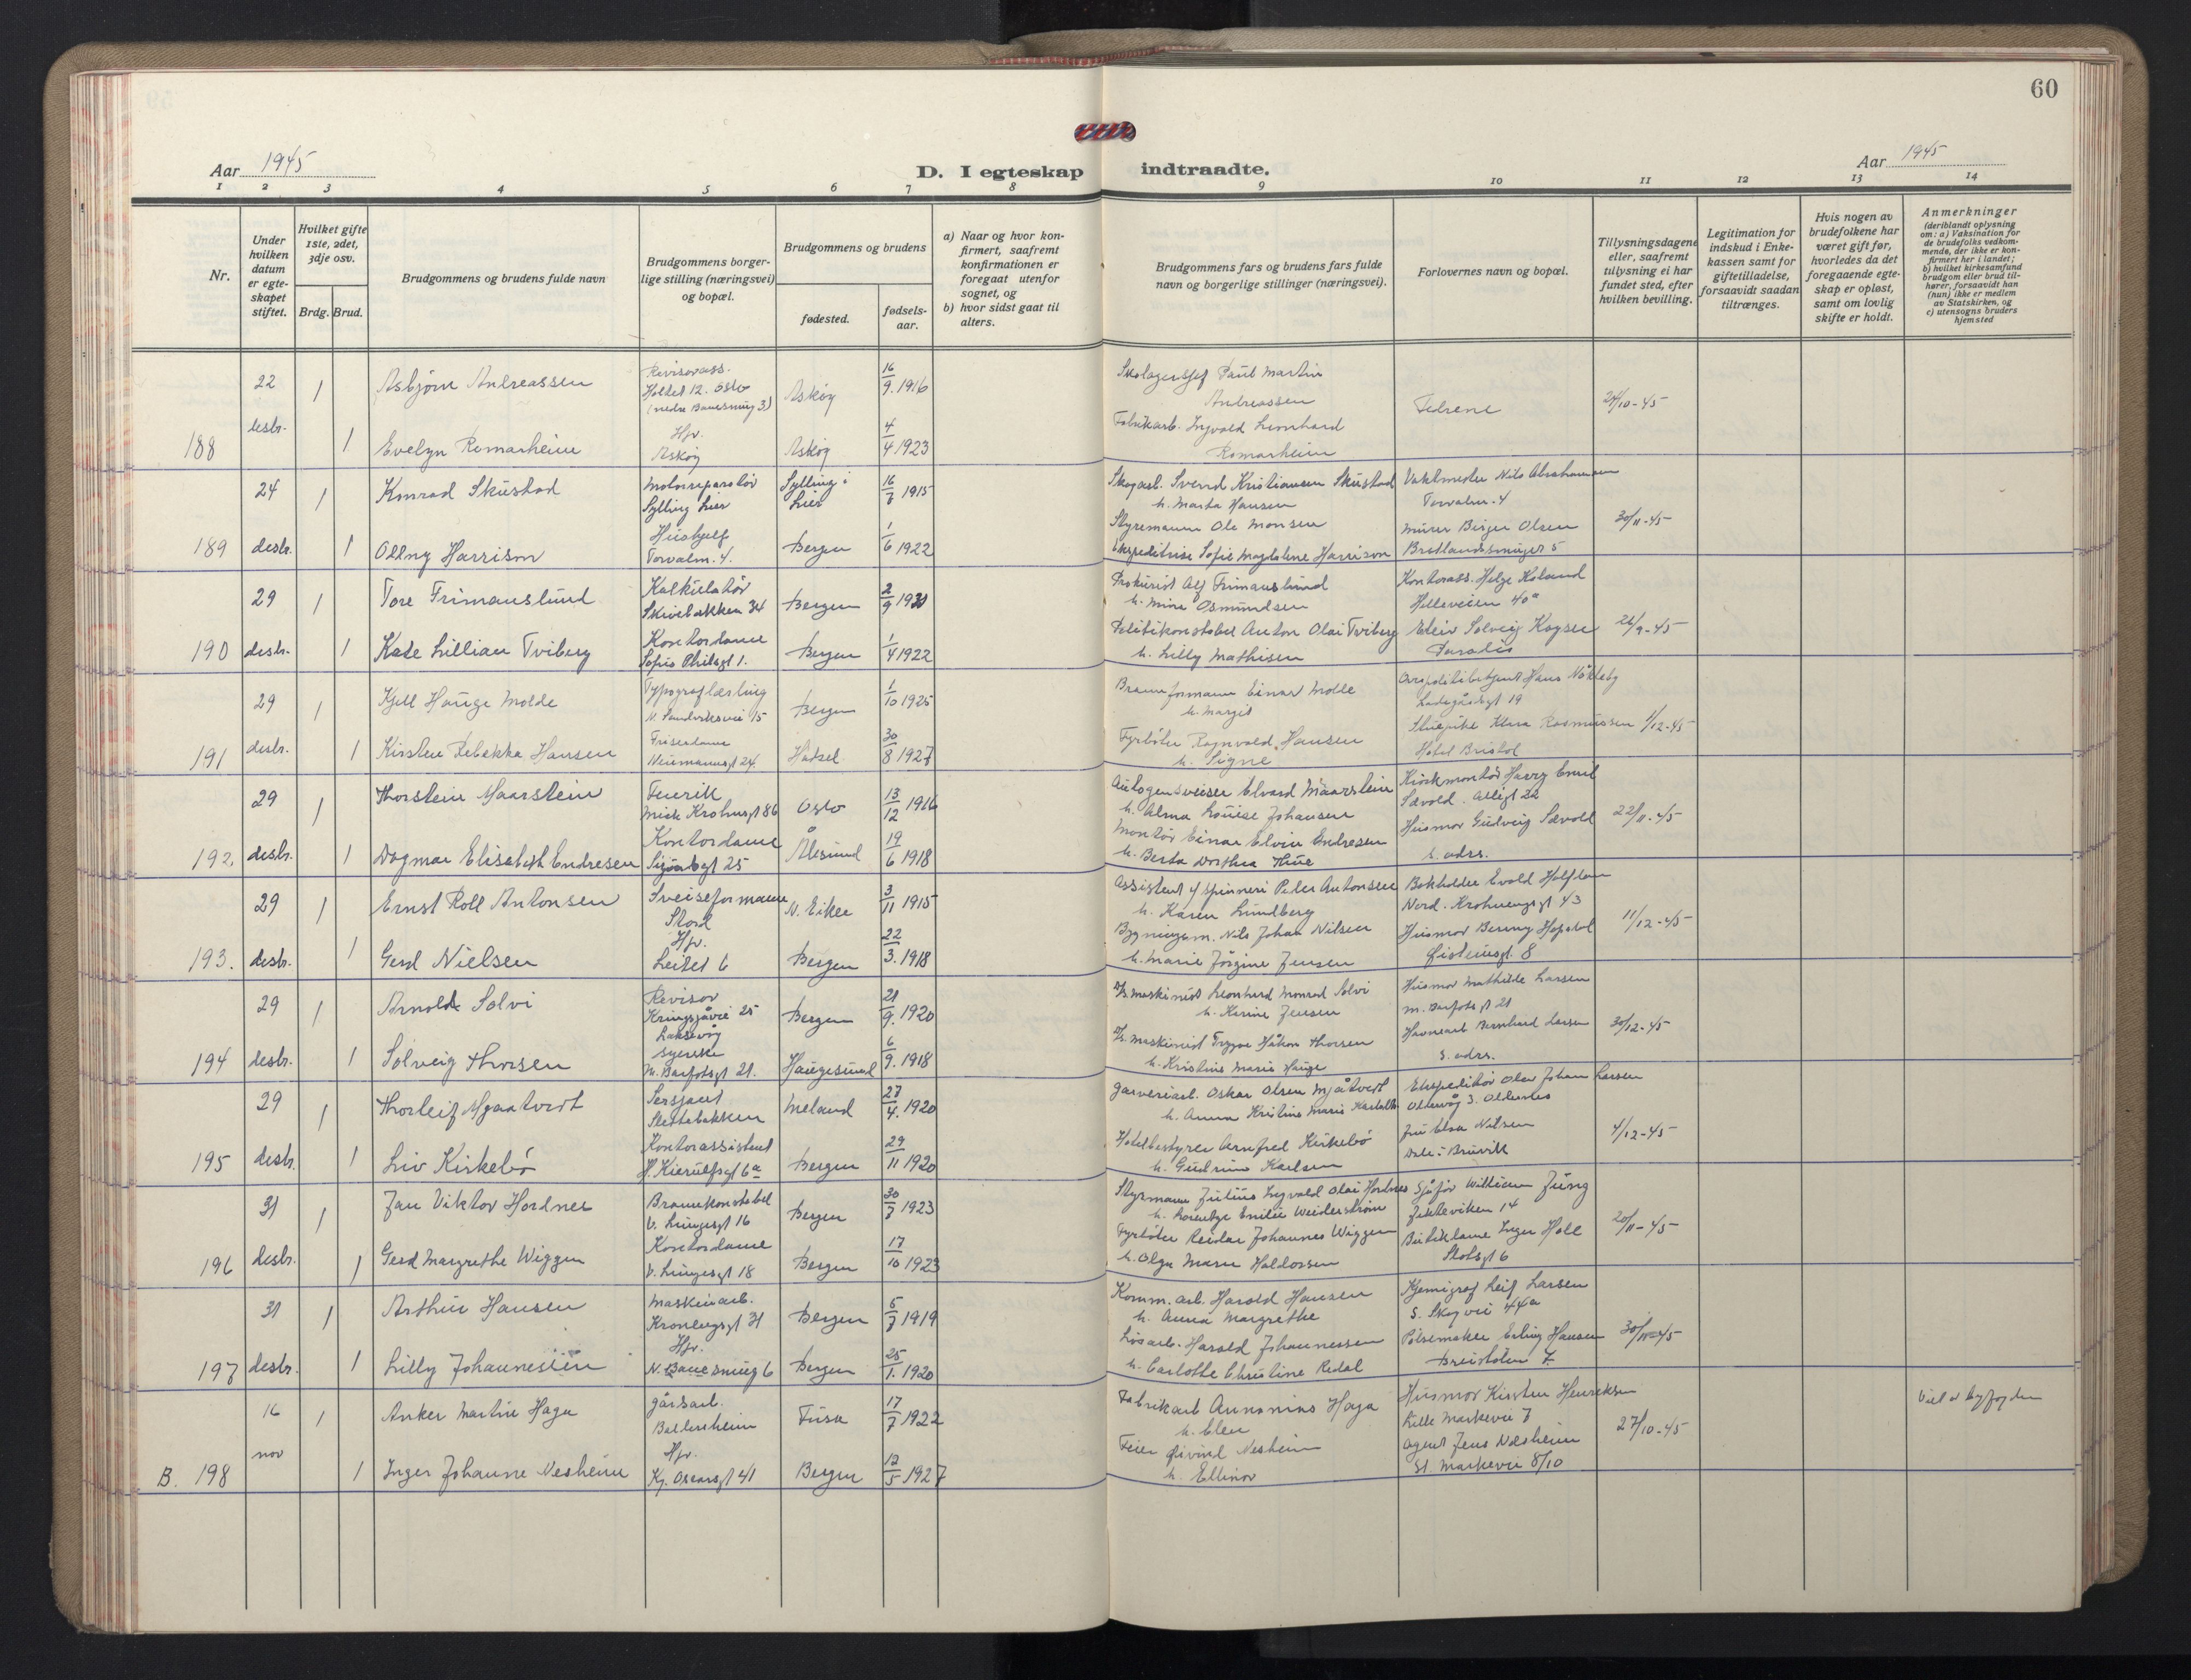 60
Aar 1945
D. I egteskap indtraadte.
Aar 1945
1 2 3 4 5 6 7 8 9 10 11 12 13 14
Nr.
Under hvilken datum er egte-skapet stiftet.
Hvilket gifte 1ste, 2det, 3dje osv.
Brdg. Brud.
Brudgommens og brudens fulde navn
Brudgommens borger-lige stilling (næringsvei) og bopæl.
Brudgommens og brudens
fødested.
fødsels-aar.
a) Naar og hvor kon-firmert, saafremt konfirmationen er foregaat utenfor sognet, og
b) hvor sidst gaat til alters.
Brudgommens fars og brudens fars fulde navn og borgerlige stillinger (næringsvei).
Forlovernes navn og bopæl.
Tillysningsdagene eller, saafremt tillysning ei har fundet sted, efter hvilken bevilling.
Legitimation for indskud i Enke-kassen samt for giftetilladelse, forsaavidt saadan tiltrænges.
Hvis nogen av brudefolkene har været gift før, hvorledes da det foregaaende egte-skap er opløst, samt om lovlig skifte er holdt.
Anmerkninger
(deriblandt oplysning om: a) Vaksination for de brudefolks vedkom-mende, der ikke er kon-firmert her i landet; b) hvilket kirkesamfund brudgom eller brud til-hører, forsaavidt han (hun) ikke er medlem av Statskirken, og c) utensogns bruders hjemsted
22 1 Asbjørn Andreassen Revisorass. Holtet 12. Oslo Askøy 16/9.1916 Paul Martin Andreassen Fedrene 24/10-45
188 desbr. 1 Evelyn Romarheim Hjv. Askøy Askøy 4/4 1923 Fabrikarb. Ingvald Leonhard Romarheim
24 1 Konrad Skustad Motorreparatør Sylling Lier Sylling i Lier 16/7 1915 Skogarb. Svend Kristiansen Skustad Vaktmester Nils Abrahamsen
h. Marta Hansen Torvalm. 4
189 desbr. 1 Oddny Harrison Hushjelp Torvalm. 4. Bergen 1/6 1922 Styremann Ole Monsen Murer Birger Olsen 30/11-45
Ekspeditrise Sofie Magdalene Harrison
29 1 Tore Frimanslund Kalkulatør Skivebakken 34 Bergen 2/9 1920 Prokurist Alf Frimanslund Kontorass. Helge Roland
h. Mina Osmundsen Helleveien 40a
190 desbr. 1 Kate Lillian Tviberg Kontordame Bergen 1/4 1922 Politikonstabel Anton Olai Tviberg Solveig Kayser 26/9-45
h. Lilly Mathisen Paradis
29 1 Kjell Hauge Molde Typograflærling N. Sandviksvei 15 Bergen 1/10 1925 Brannformann Einar Molde Hans Nökleby
h. Margit Ladegårdsgt 19
191 desbr. 1 Kirsten Rebekka Hansen Friserdame Neumannsgt 24. Hadsel 30/8 1927 Fyrböter Ragnvald Hansen Stuepike Klara Rasmussen 1/12-45
h. Signe Hotel Bristol
29 1 Thorstein Maarstein Oslo 13/12 1916 Autogensveiser Edvard Maarstein Harry Emil Sævold. Allegt 22
h. Alma Louise Johansen
192. desbr. 1 Dagmar Elisabeth Endresen Kontordame Sigurdsgt 25 Ålesund 19/6 1918 Montör Einar Elvin Endresen Husmor Gudveig Sævold 22/11-45
h. Berta Dorthea s. adrs.
29 1 Ernst Roll Antonsen Sveiseformann Stord N. Eiker 3/11 1915 Assistent v/ spinneri Peder Antonsen Bokholder Evald
h. Karen Lundberg 43
193. desbr. 1 Gerd Nielsen Hjv. Leitet 6 Bergen 22/3.1918 Bygningsm. Nils Johan Nilsen Husmor 11/12-45
h. Marie Jörgine Jensen Øisteinsgt. 8
29 1 Arnold Solvi Revisor Kringsjåvei 25 Laksevåg Bergen 21/9.1920 Maskinist Leonhard Monrad Solvi Husmor Mathilde Larsen
h. Karine Jensen M. Barfotsgt 21
194 desbr. 1 Solveig Thorsen Syerske M. Barfotsgt 21. Haugesund 6/9.1918 Maskinist Trygve Håkon Thorsen Havnearb Bernhard Larsen 30/12-45
h. Kristine Marie Hauge s. adrs.
29 1 Thorleif Mjaatvedt Sersjant Slettebakken Meland 27/4.1920 Garveriarb. Oskar Olsen Mjåtvedt Ekspeditör Olav Johan Larsen
h. Anna Kristine Marie
195 desbr. 1 Liv Kirkebö Kontorassistent H. Kierulfsgt 6a Bergen 29/11 1920 Hotelbestyrer Arnfred Kirkebö Fru Elsa Nilsen 4/12-45
h. Gudrun Karlsen Dale i Bruvik
31 1 Jan Viktor Hordnes Brannkonstabel V. Lungesgt 16 Bergen 30/7 1923 Styrmann Julius Ingvald Olai Hordnes Sjåfør William Jung
Emilie Weiderström Jekteviken 14
196 desbr. 1 Gerd Margrethe Wiggen Kontordame V. Lungesgt 18 Bergen 17/10 1923 Fyrböter Reidar Johannes Wiggen Butikkdame Inger 20/11-45
h. Olga Marie Haldorsen
31 1 Arthur Hansen Maskinarb. Kronengsgt 31 Bergen 5/7 1919 Komm. arb. Harald Hansen Kjemigraf Leif Larsen
h. Anna Margrethe S. Skogvei 44a
197 desbr. 1 Lilly Johannesen Hjv. N. Banesmug 6 Bergen 25/1.1920 Løsarb. Harald Johannessen Pølsemaker Erling Hansen 30/11-45
h. Carlotte Christine Redal
16 1 Anker Martin Haga gårdsarb. Fusa 17/7 1922 Fabrikarb Annanias Haga Husmor Kirsten Henriksen Viet av byfogden
Lille Markevei 7
B. 198 nov 1 Inger Johanne Nesheim Hjv. Kg. Oscarsgt 41 Bergen 12/5 1927 Feier Øivind Nesheim Agent Jens Nesheim 27/10-45
h. Ellinor St. Markevei 8/10